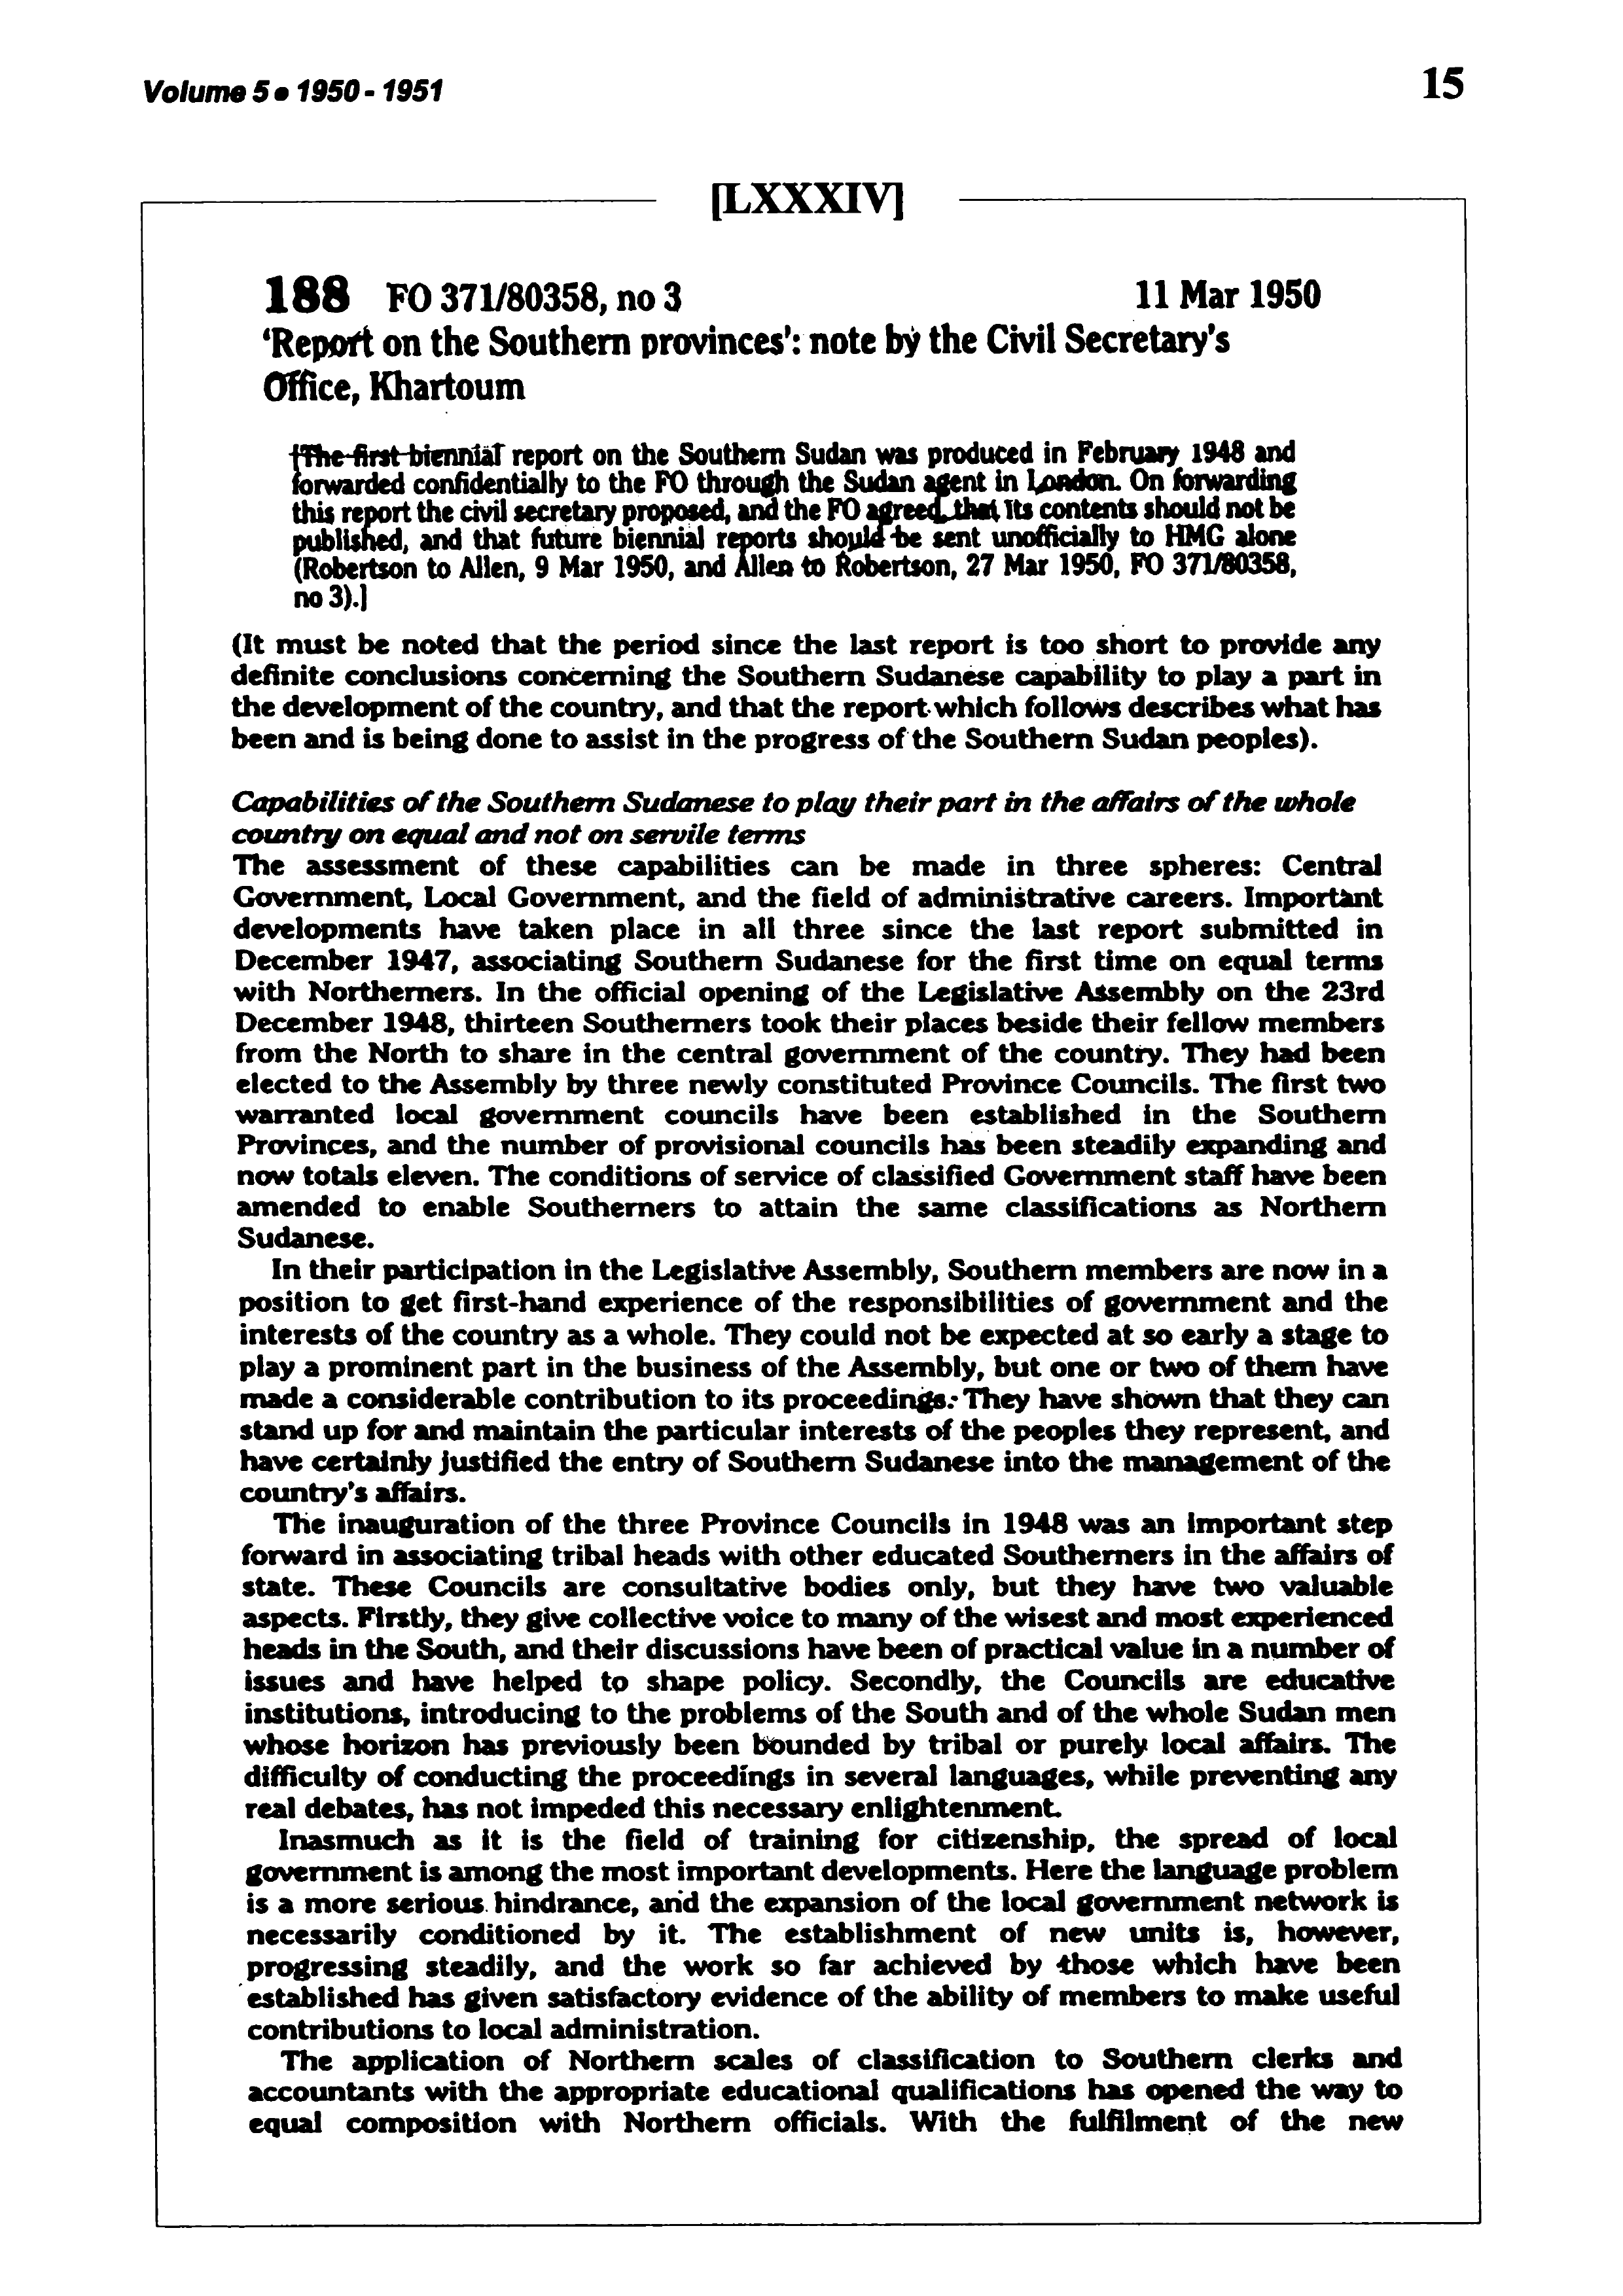 Volume 5 • 1950 - 1951
15
[LXXXIV]
188 FO 371/80358, no 3
11 Mar 1950
'Report on the Southern provinces': note by the Civil Secretary's
Office, Khartoum
[The first biennial report on the Southern Sudan was produced in February 1948 and
forwarded confidentially to the FO through the Sudan agent in London. On forwarding
this report the civil secretary proposed, and the FO agreed, that its contents should not be
published, and that future biennial reports should be sent unofficially to HMG alone
(Robertson to Allen, 9 Mar 1950, and Allen to Robertson, 27 Mar 1950, FO 371/80358,
no 3).]
(It must be noted that the period since the last report is too short to provide any
definite conclusions concerning the Southern Sudanese capability to play a part in
the development of the country, and that the report which follows describes what has
been and is being done to assist in the progress of the Southern Sudan peoples).
Capabilities of the Southern Sudanese to play their part in the affairs of the whole
country on equal and not on servile terms
The assessment of these capabilities can be made in three spheres: Central
Government, Local Government, and the field of administrative careers. Important
developments have taken place in all three since the last report submitted in
December 1947, associating Southern Sudanese for the first time on equal terms
with Northerners. In the official opening of the Legislative Assembly on the 23rd
December 1948, thirteen Southerners took their places beside their fellow members
from the North to share in the central government of the country. They had been
elected to the Assembly by three newly constituted Province Councils. The first two
warranted local government councils have been established in the Southern
Provinces, and the number of provisional councils has been steadily expanding and
now totals eleven. The conditions of service of classified Government staff have been
amended to enable Southerners to attain the same classifications as Northern
Sudanese.
In their participation in the Legislative Assembly, Southern members are now in a
position to get first-hand experience of the responsibilities of government and the
interests of the country as a whole. They could not be expected at so early a stage to
play a prominent part in the business of the Assembly, but one or two of them have
made a considerable contribution to its proceedings. They have shown that they can
stand up for and maintain the particular interests of the peoples they represent, and
have certainly justified the entry of Southern Sudanese into the management of the
country's affairs.
The inauguration of the three Province Councils in 1948 was an important step
forward in associating tribal heads with other educated Southerners in the affairs of
state. These Councils are consultative bodies only, but they have two valuable
aspects. Firstly, they give collective voice to many of the wisest and most experienced
heads in the South, and their discussions have been of practical value in a number of
issues and have helped to shape policy. Secondly, the Councils are educative
institutions, introducing to the problems of the South and of the whole Sudan men
whose horizon has previously been bounded by tribal or purely local affairs. The
difficulty of conducting the proceedings in several languages, while preventing any
real debates, has not impeded this necessary enlightenment.
Inasmuch as it is the field of training for citizenship, the spread of local
government is among the most important developments. Here the language problem
is a more serious hindrance, and the expansion of the local government network is
necessarily conditioned by it. The establishment of new units is, however,
progressing steadily, and the work so far achieved by those which have been
established has given satisfactory evidence of the ability of members to make useful
contributions to local administration.
The application of Northern scales of classification to Southern clerks and
accountants with the appropriate educational qualifications has opened the way to
equal composition with Northern officials. With the fulfilment of the new